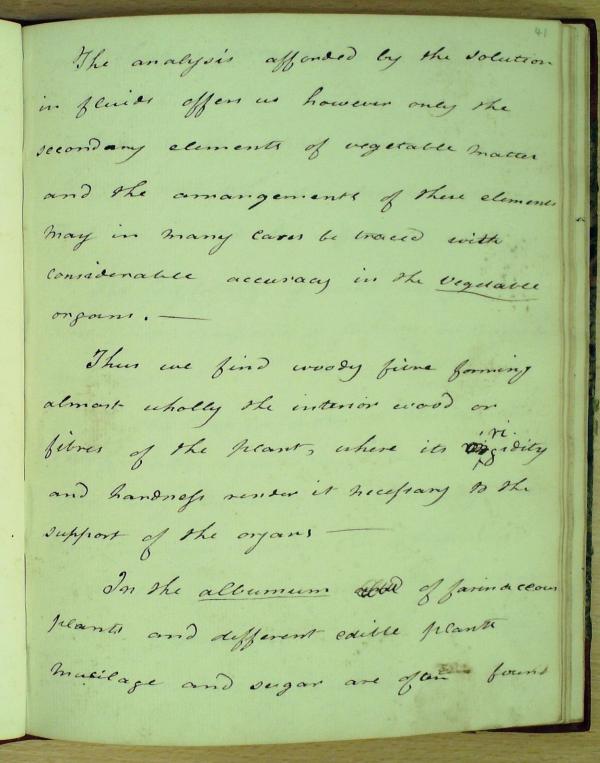 41
The analysis afforded by the solution
in fluids offers us however only the
secondary elements of vegetable matter
and the arrangements of these elements
may in many cases be traced with
considerable accuracy in the vegetable
organs. —
Thus we find woody fibre forming
almost wholly the interior wood or
ri
fibres of the plant, where its gidity
and hardness render it necessary to the
support of the organs —
In the alburnum of farinaceous
plants and different edible plants
mucilage and sugar are often found